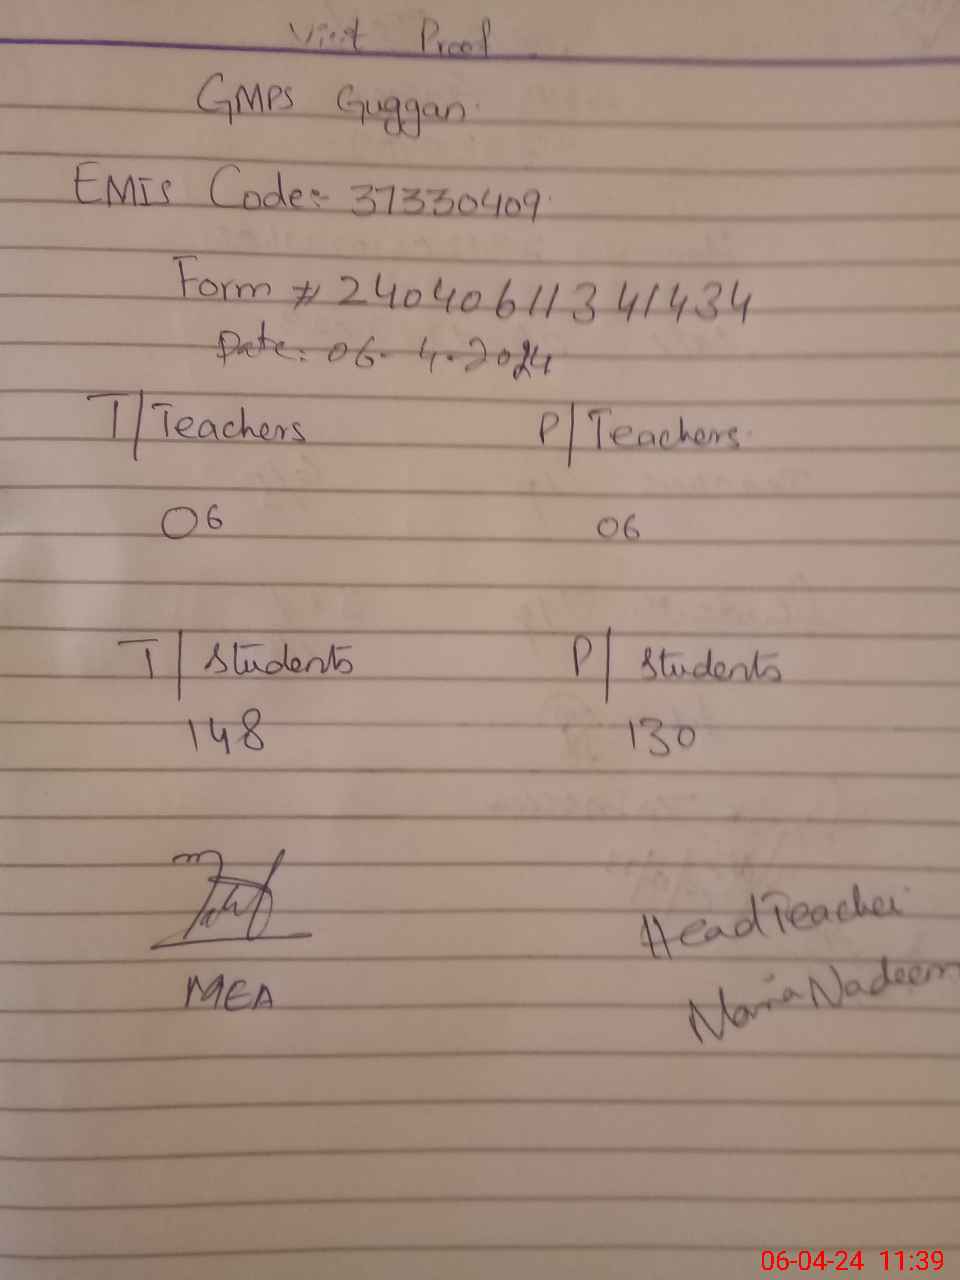 Visit Proof
GMPS Guggan.
EMIS Code:- 37330409.
Form # 24040611341434
Date: 06. 4. 2024
T/Teachers P/Teachers.
06 06
T/Students P/Students
148 130
MEA
Head Teacher
Maria Nadeem
06-04-24 11:39